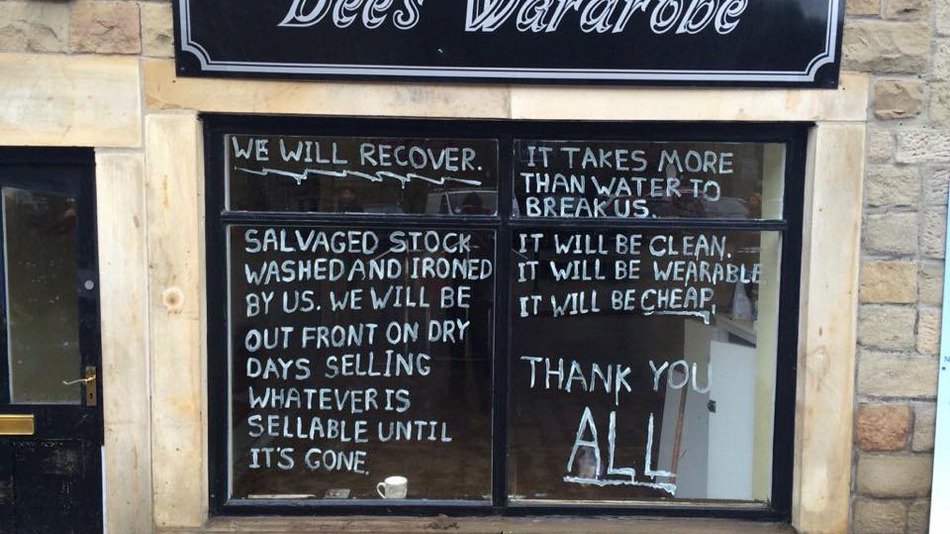 Dees Wardrobe
WE WILL RECOVER.
SALVAGED STOCK
WASHED AND IRONED
BY US. WE WILL BE
OUT FRONT ON DRY
DAYS SELLING
WHATEVER IS
SELLABLE UNTIL
IT'S GONE.
IT TAKES MORE
THAN WATER TO
BREAK US.
IT WILL BE CLEAN.
IT WILL BE WEARABLE
IT WILL BE CHEAP.
THANK YOU
ALL